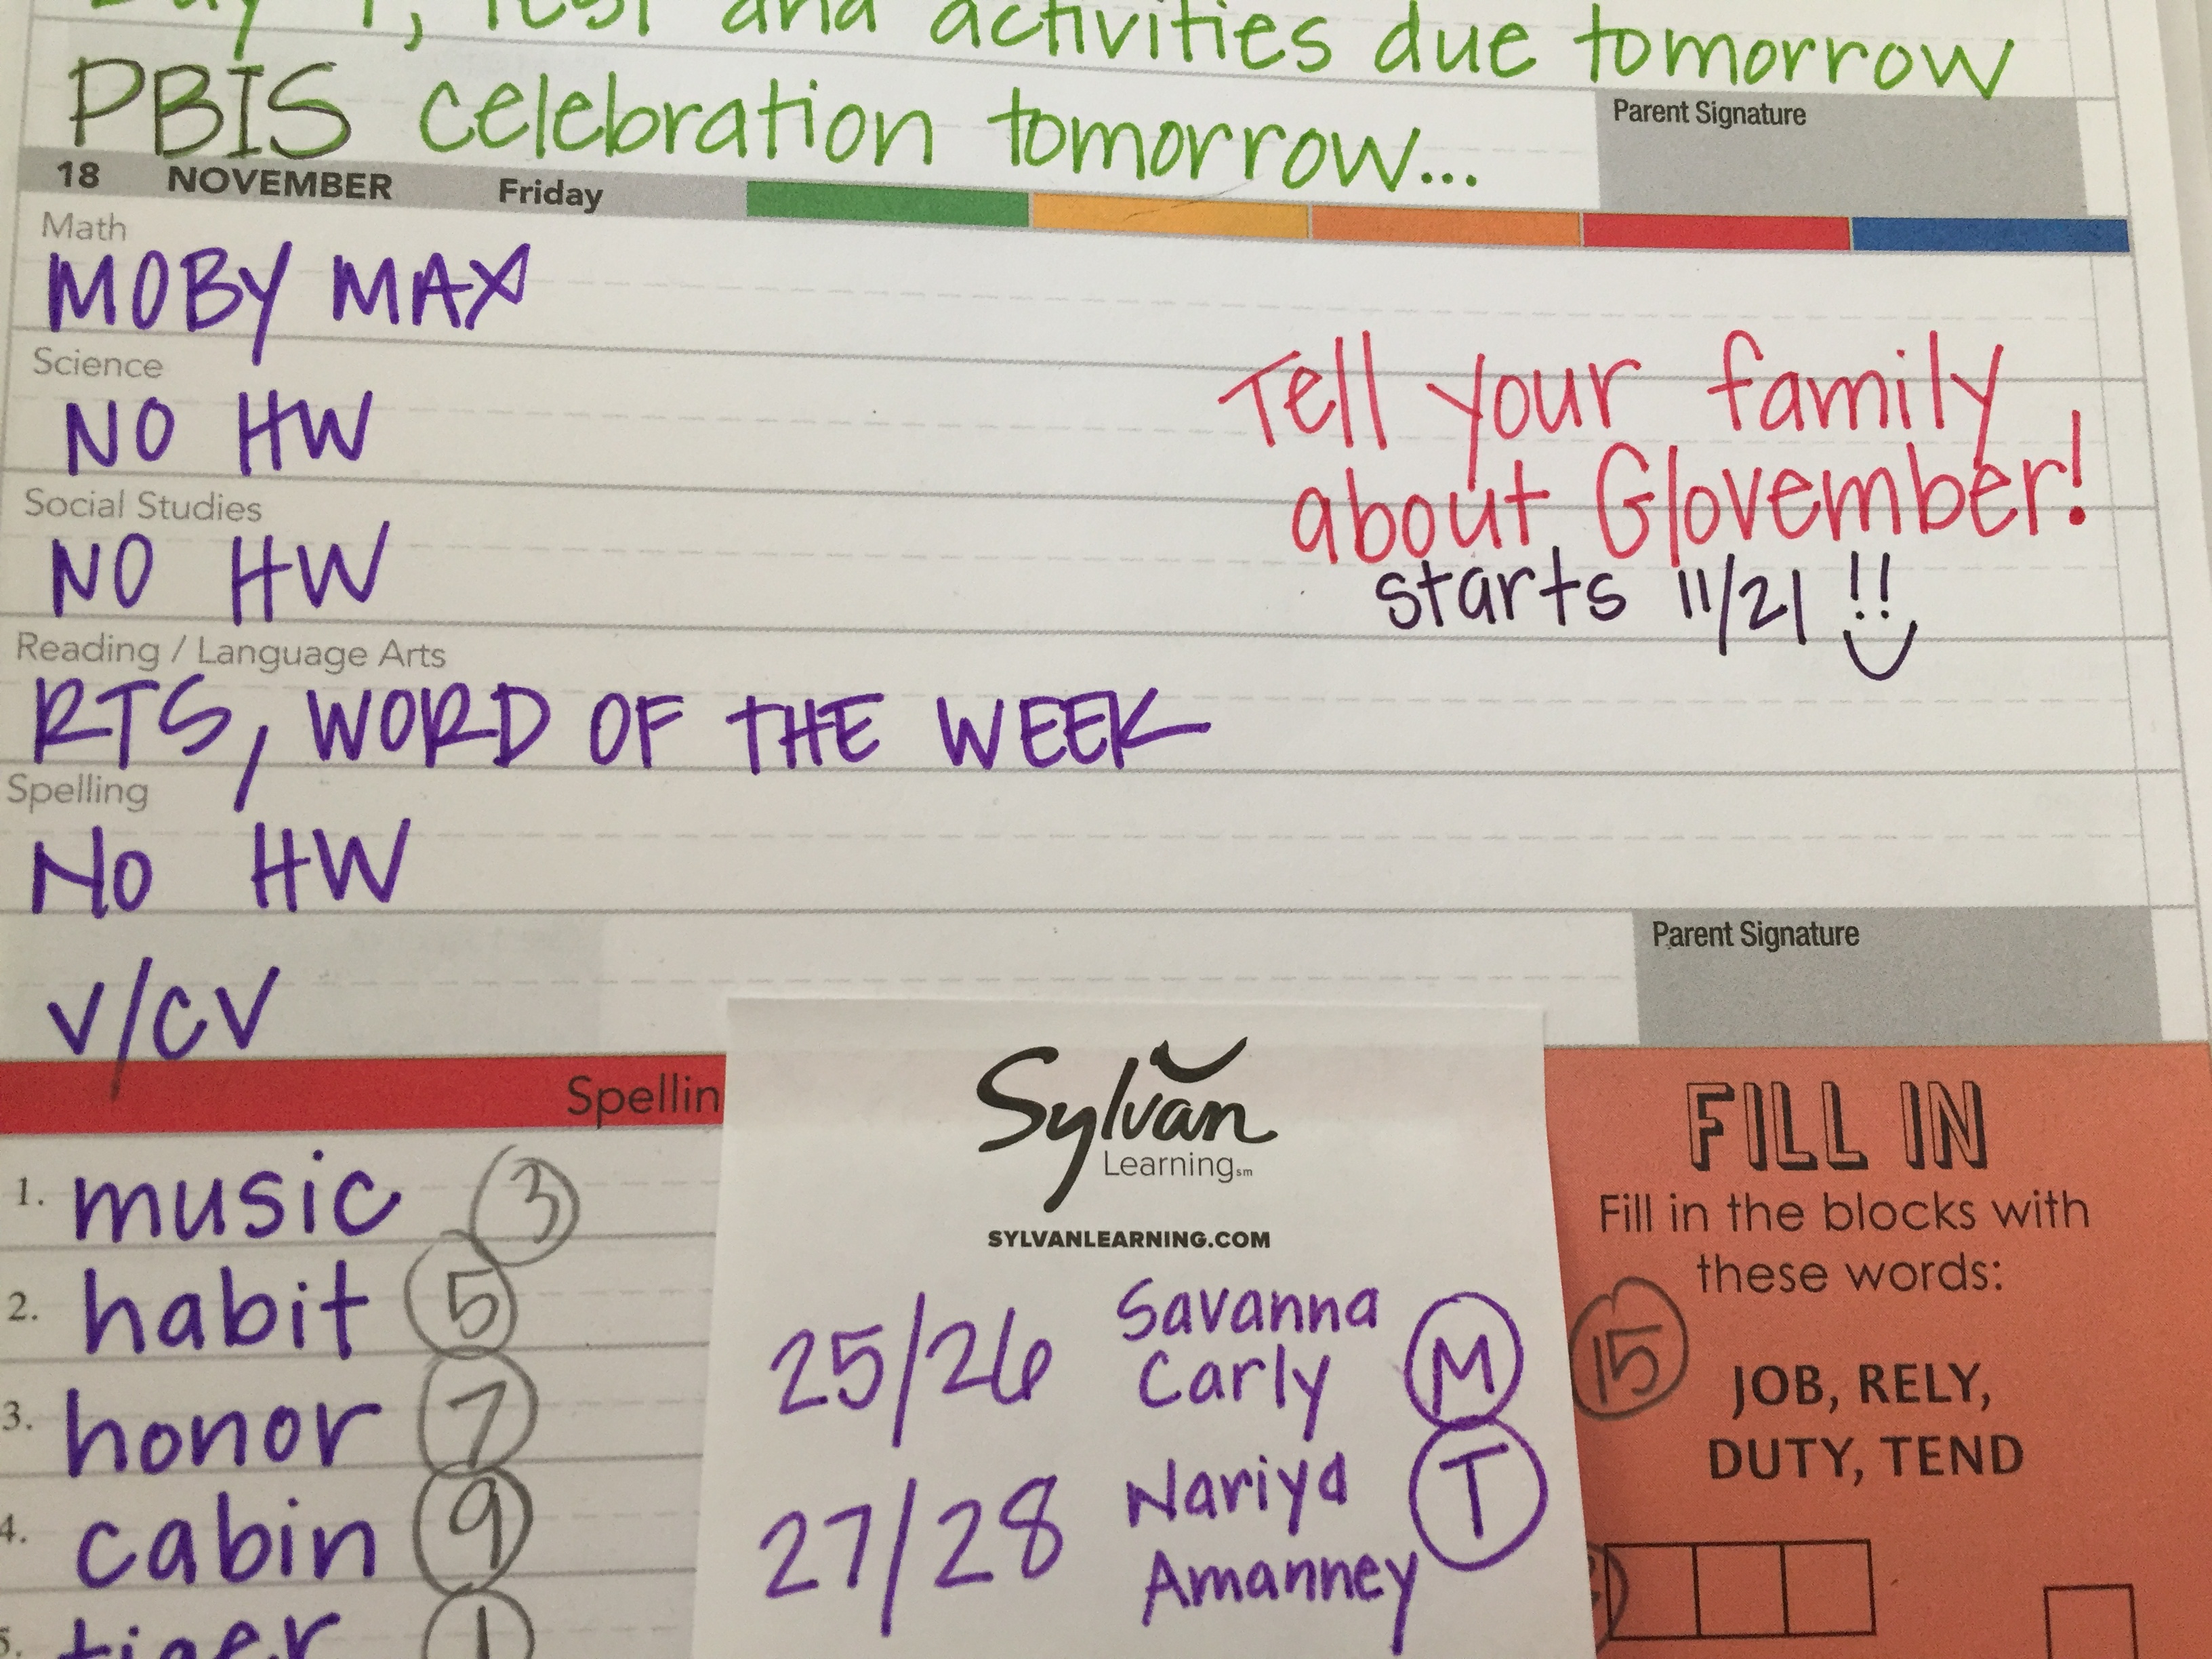 Day 4, test and activities due tomorrow
PBIS celebration tomorrow...
Parent Signature
18 NOVEMBER Friday
Math
MOBY MAX
Science
NO HW
Social Studies
NO HW
Tell your family
about Glovember!
starts 11/21 !!
Reading / Language Arts
RTS, WORD OF THE WEEK
Spelling
No HW
Parent Signature
V/CV
Spellin
1. music 3
2. habit 5
3. honor 7
4. cabin 9
5. tiger 1
Sylvan
Learning℠
SYLVANLEARNING.COM
25/26 Savanna
Carly M
27/28 Nariya T
Amanney
FILL IN
Fill in the blocks with
these words:
15
JOB, RELY,
DUTY, TEND